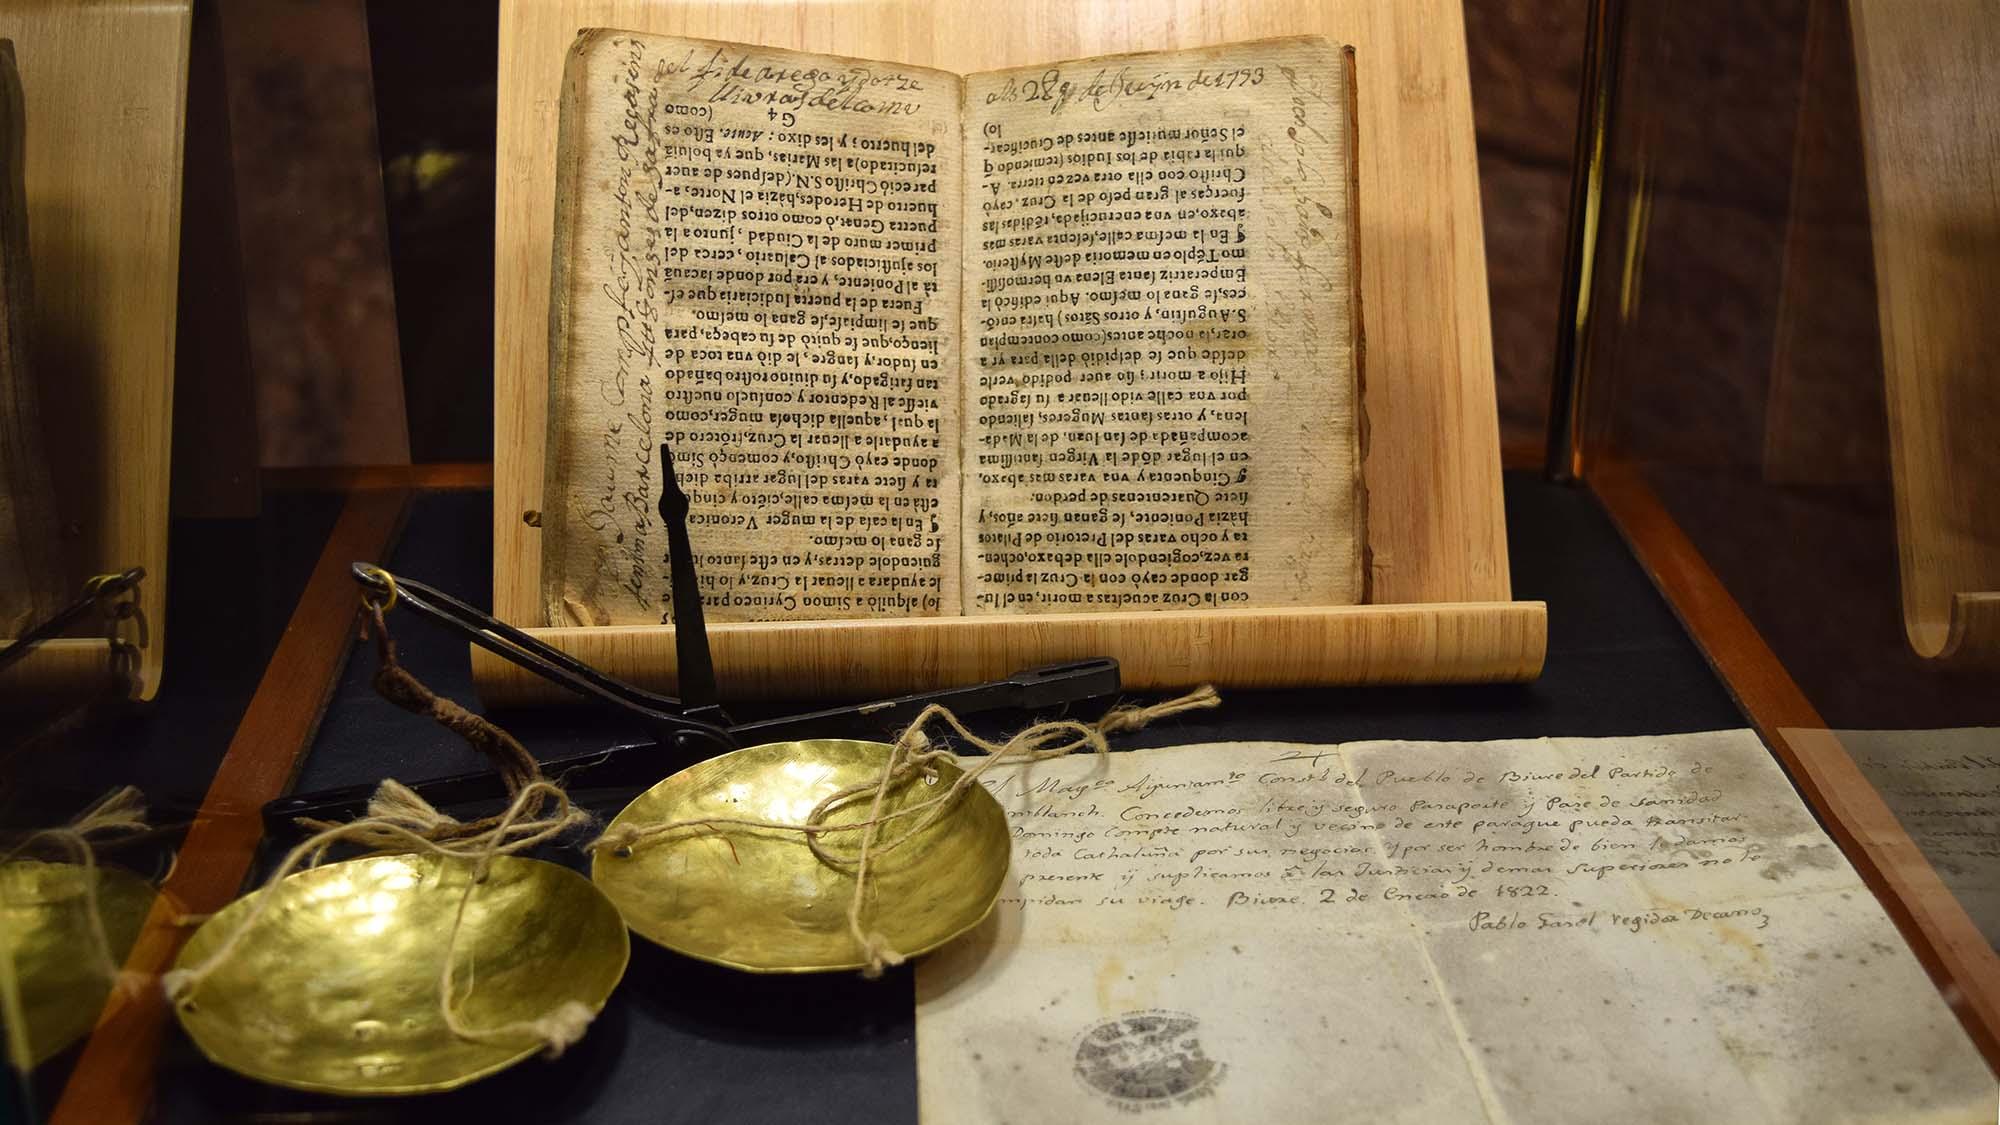 el fide arega y dotze
lliuras del comu
als 28 de Juÿn de 1793
Jaume Compte, janton Regasins
Barcelona
con la Cruz acueſtas a morir, en el lu-
gar donde cayò con la Cruz la prime-
ra vez, cogiendole ella debaxo, ochen-
ta y ocho varas del Pretorio de Pilatos
hàzia Poniente, ſe ganan ſiete años, y
ſiete Quarentenas de perdon.
¶ Cinquenta y vna varas mas abaxo,
en el lugar dõde la Virgen ſantiſſima
acompañada de ſan Iuan, de la Mada-
lena, y otras ſantas Mugeres, ſaliendo
por vna calle vido lleuar a ſu ſagrado
Hijo a morir; ſin auer podido verle
deſde que ſe deſpidiò della para yr a
orar, la noche antes (como contemplan
S. Auguſtin, y otros Sãtos) haſta entõ-
ces, ſe gana lo meſmo. Aqui edificò la
Emperatriz ſanta Elena vn hermoſiſſi-
mo Tẽplo en memoria deſte Myſterio.
¶ En la meſma calle, ſeſenta varas mas
abaxo, en vna encrucijada, rẽdidas las
fuerças al gran peſo de la Cruz, cayò
Chriſto con ella otra vez en tierra. A-
qui la rabia de los Iudios (temiendo q̃
el Señor murieſſe antes de Crucificar-
lo)
lo) alquilò a Simon Cyrineo para
le ayudara a lleuar la Cruz, y lo hi
guiendole detras, y en eſte ſanto lu
ſe gana lo meſmo.
¶ En la caſa de la muger Veronica
eſtà en la meſma calle, ciẽto y cinq
ta y ſiete varas del lugar arriba dich
donde cayò Chriſto, y començò Simõ
a ayudarle a lleuar la Cruz, frõtero de
la qual, aquella dichoſa muger, como
vieſſe al Redentor y conſuelo nueſtro
tan fatigado, y ſu diuino roſtro bañado
en ſudor, y ſangre, le diò vna toca de
lienço, que ſe quitò de ſu cabeça, para
que ſe limpiaſe, ſe gana lo meſmo.
Fuera de la puerta Iudiciaria que eſ-
tà al Poniente, y era por donde ſacauã
los ajuſticiados al Caluario, cerca del
primer muro de la Ciudad, junto a la
puerta Genat, ò como otros dizen, del
huerto de Herodes, hàzia el Norte, a-
pareciò Chriſto S. N. (deſpues de auer
reſucitado) a las Marias, que ya boluiã
del huerto; y les dixo: Auete. Eſto es
G4 (como
El Magco Ayuntamto Constl del Pueblo de Biure del Partido de
mblanch. Concedemos libre y seguro Pasaporte y Pase de Sanidad
Domingo Compte natural y vecino de este paraque pueda transitar
toda Cathaluña por sus negocios y por ser hombre de bien le damos
presente y suplicamos a las Justicias y demas superiores no le
mpidan su viage. Biure 2 de Enero de 1822.
Pablo Farol regidor Decano